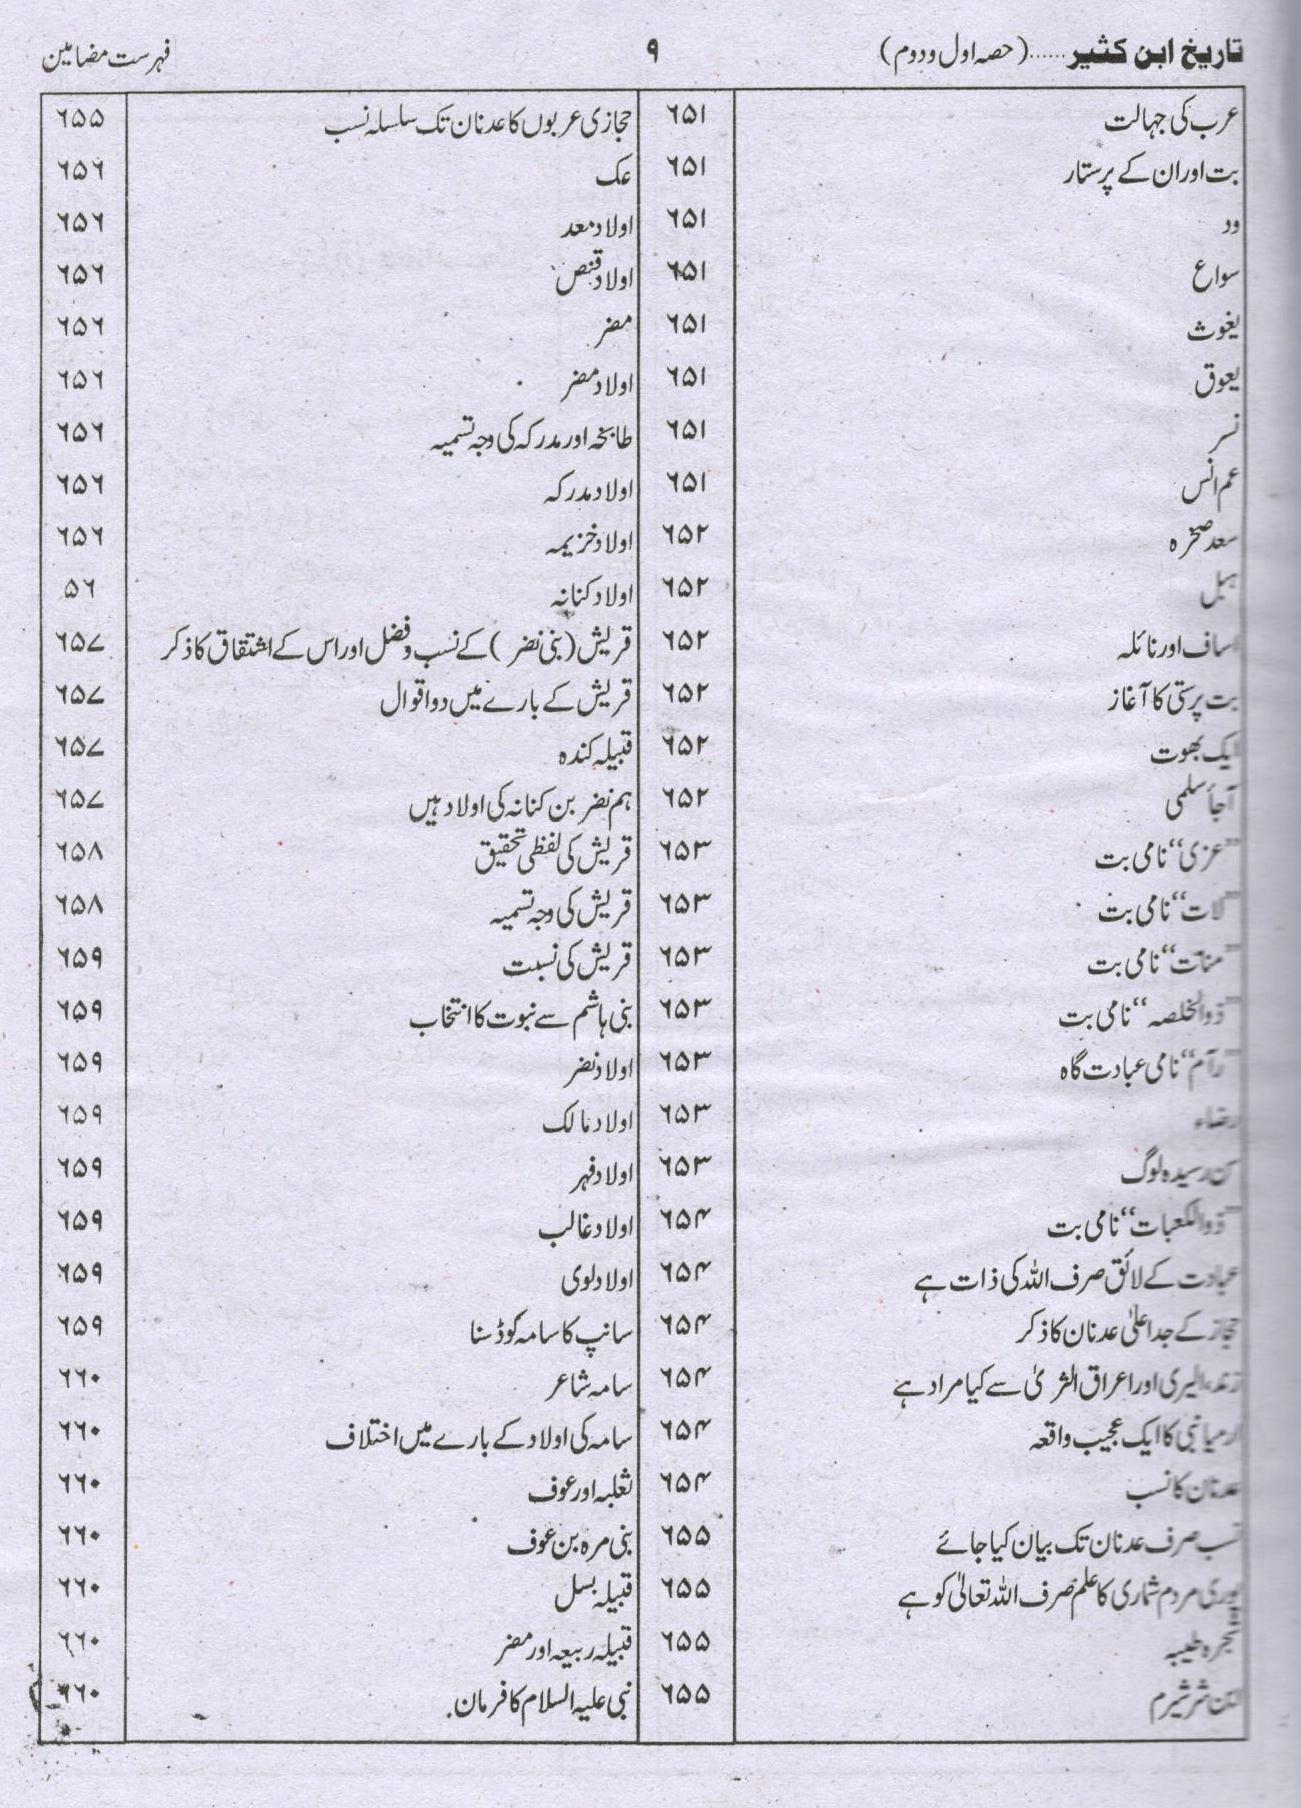 تاریخ ابن کثیر......(حصہ اول و دوم) ۹ فہرست مضامین
عرب کی جہالت ۶۵۱
بت اور ان کے پرستار ۶۵۱
ود ۶۵۱
سواع ۶۵۱
یغوث ۶۵۱
یعوق ۶۵۱
نسر ۶۵۱
عم انس ۶۵۱
سعد صخرہ ۶۵۲
ہبل ۶۵۲
اساف اور نائلہ ۶۵۲
بت پرستی کا آغاز ۶۵۲
ایک بھوت ۶۵۲
آجأ سلمی ۶۵۲
”عزی“ نامی بت ۶۵۳
”لات“ نامی بت ۶۵۳
”منات“ نامی بت ۶۵۳
”ذوالخلصہ“ نامی بت ۶۵۳
”رآم“ نامی عبادت گاہ ۶۵۳
رضاء ۶۵۳
سن رسیدہ لوگ ۶۵۳
”ذوالکعبات“ نامی بت ۶۵۴
عبادت کے لائق صرف اللہ کی ذات ہے ۶۵۴
حجاز کے جد اعلیٰ عدنان کا ذکر ۶۵۴
زند، الیری اور اعراق الثریٰ سے کیا مراد ہے ۶۵۴
ارمیا نبی کا ایک عجیب واقعہ ۶۵۴
عدنان کا نسب ۶۵۴
نسب صرف عدنان تک بیان کیا جائے ۶۵۵
پوری مردم شماری کا علم صرف اللہ تعالیٰ کو ہے ۶۵۵
شجرہ طیبہ ۶۵۵
شرشیرم ۶۵۵
حجازی عربوں کا عدنان تک سلسلہ نسب ۶۵۵
عک ۶۵۶
اولاد معد ۶۵۶
اولاد قنص ۶۵۶
مضر ۶۵۶
اولاد مضر ۶۵۶
طابخہ اور مدرکہ کی وجہ تسمیہ ۶۵۶
اولاد مدرکہ ۶۵۶
اولاد خزیمہ ۶۵۶
اولاد کنانہ ۵۶
قریش (بنی نضر) کے نسب و فضل اور اس کے اشتقاق کا ذکر ۶۵۷
قریش کے بارے میں دو اقوال ۶۵۷
قبیلہ کندہ ۶۵۷
ہم نضر بن کنانہ کی اولاد ہیں ۶۵۷
قریش کی لفظی تحقیق ۶۵۸
قریش کی وجہ تسمیہ ۶۵۸
قریش کی نسبت ۶۵۹
بنی ہاشم سے نبوت کا انتخاب ۶۵۹
اولاد نضر ۶۵۹
اولاد مالک ۶۵۹
اولاد فہر ۶۵۹
اولاد غالب ۶۵۹
اولاد لوی ۶۵۹
سانپ کا سامہ کو ڈسنا ۶۵۹
سامہ شاعر ۶۶۰
سامہ کی اولاد کے بارے میں اختلاف ۶۶۰
ثعلبہ اور عوف ۶۶۰
بنی مرہ بن عوف ۶۶۰
قبیلہ بسل ۶۶۰
قبیلہ ربیعہ اور مضر ۶۶۰
نبی علیہ السلام کا فرمان. ۶۶۰